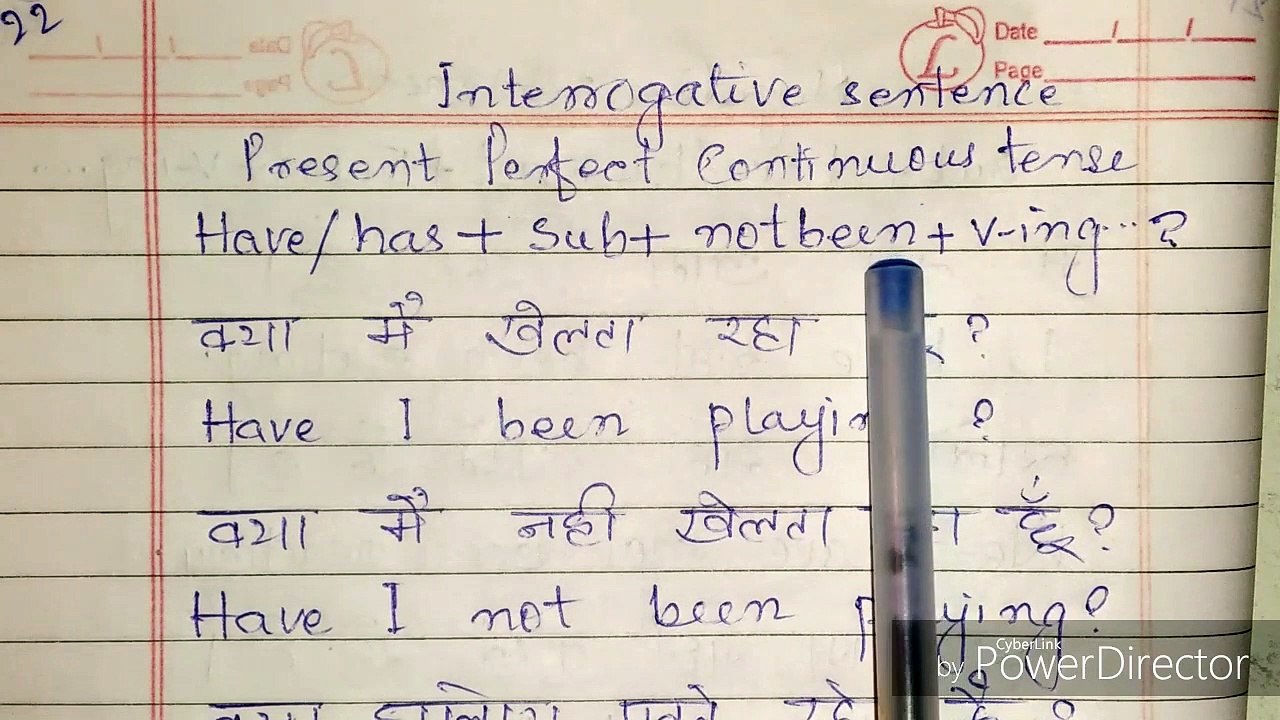 22
Date
Page
Interrogative sentence
Present Perfect Continuous tense
Have/has + Sub + not been + v-ing... ?
क्या मैं खेलता रहा ?
Have I been playing ?
क्या मैं नही खेलता हूँ?
Have I not been playing?
CyberLink
by PowerDirector
क्या